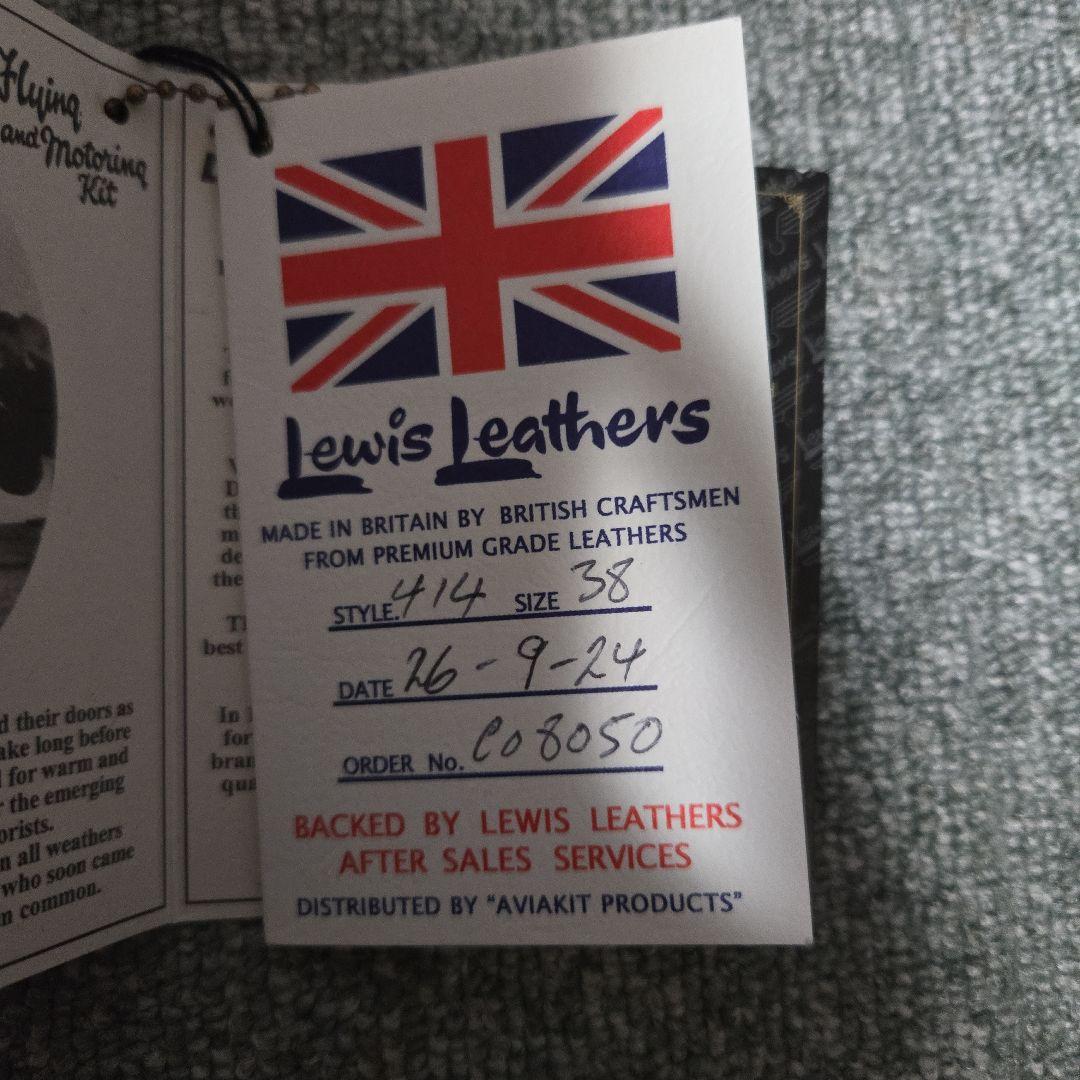 Flying
and Motoring
Kit
d their doors as
ake long before
for warm and
the emerging
orists.
n all weathers
who soon came
n common.
the
best
In
for
Lewis Leathers
MADE IN BRITAIN BY BRITISH CRAFTSMEN
FROM PREMIUM GRADE LEATHERS
STYLE. 414 SIZE 38
DATE 26-9-24
ORDER No. C08050
BACKED BY LEWIS LEATHERS
AFTER SALES SERVICES
DISTRIBUTED BY "AVIAKIT PRODUCTS"